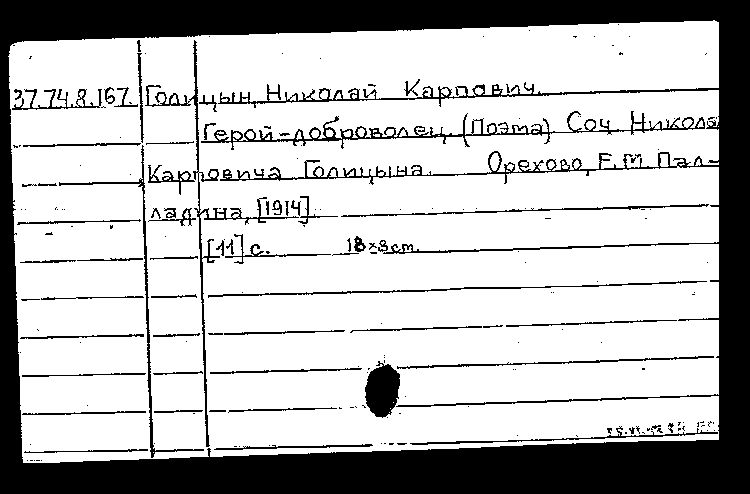 37.74.8.167. Голицын, Николай Карпович.
Герой-доброволец. (Поэма). Соч. Никола
Карповича Голицына. Орехово, Е.М. Пал-
ладина, [1914].
[11] с. 18×8 см.